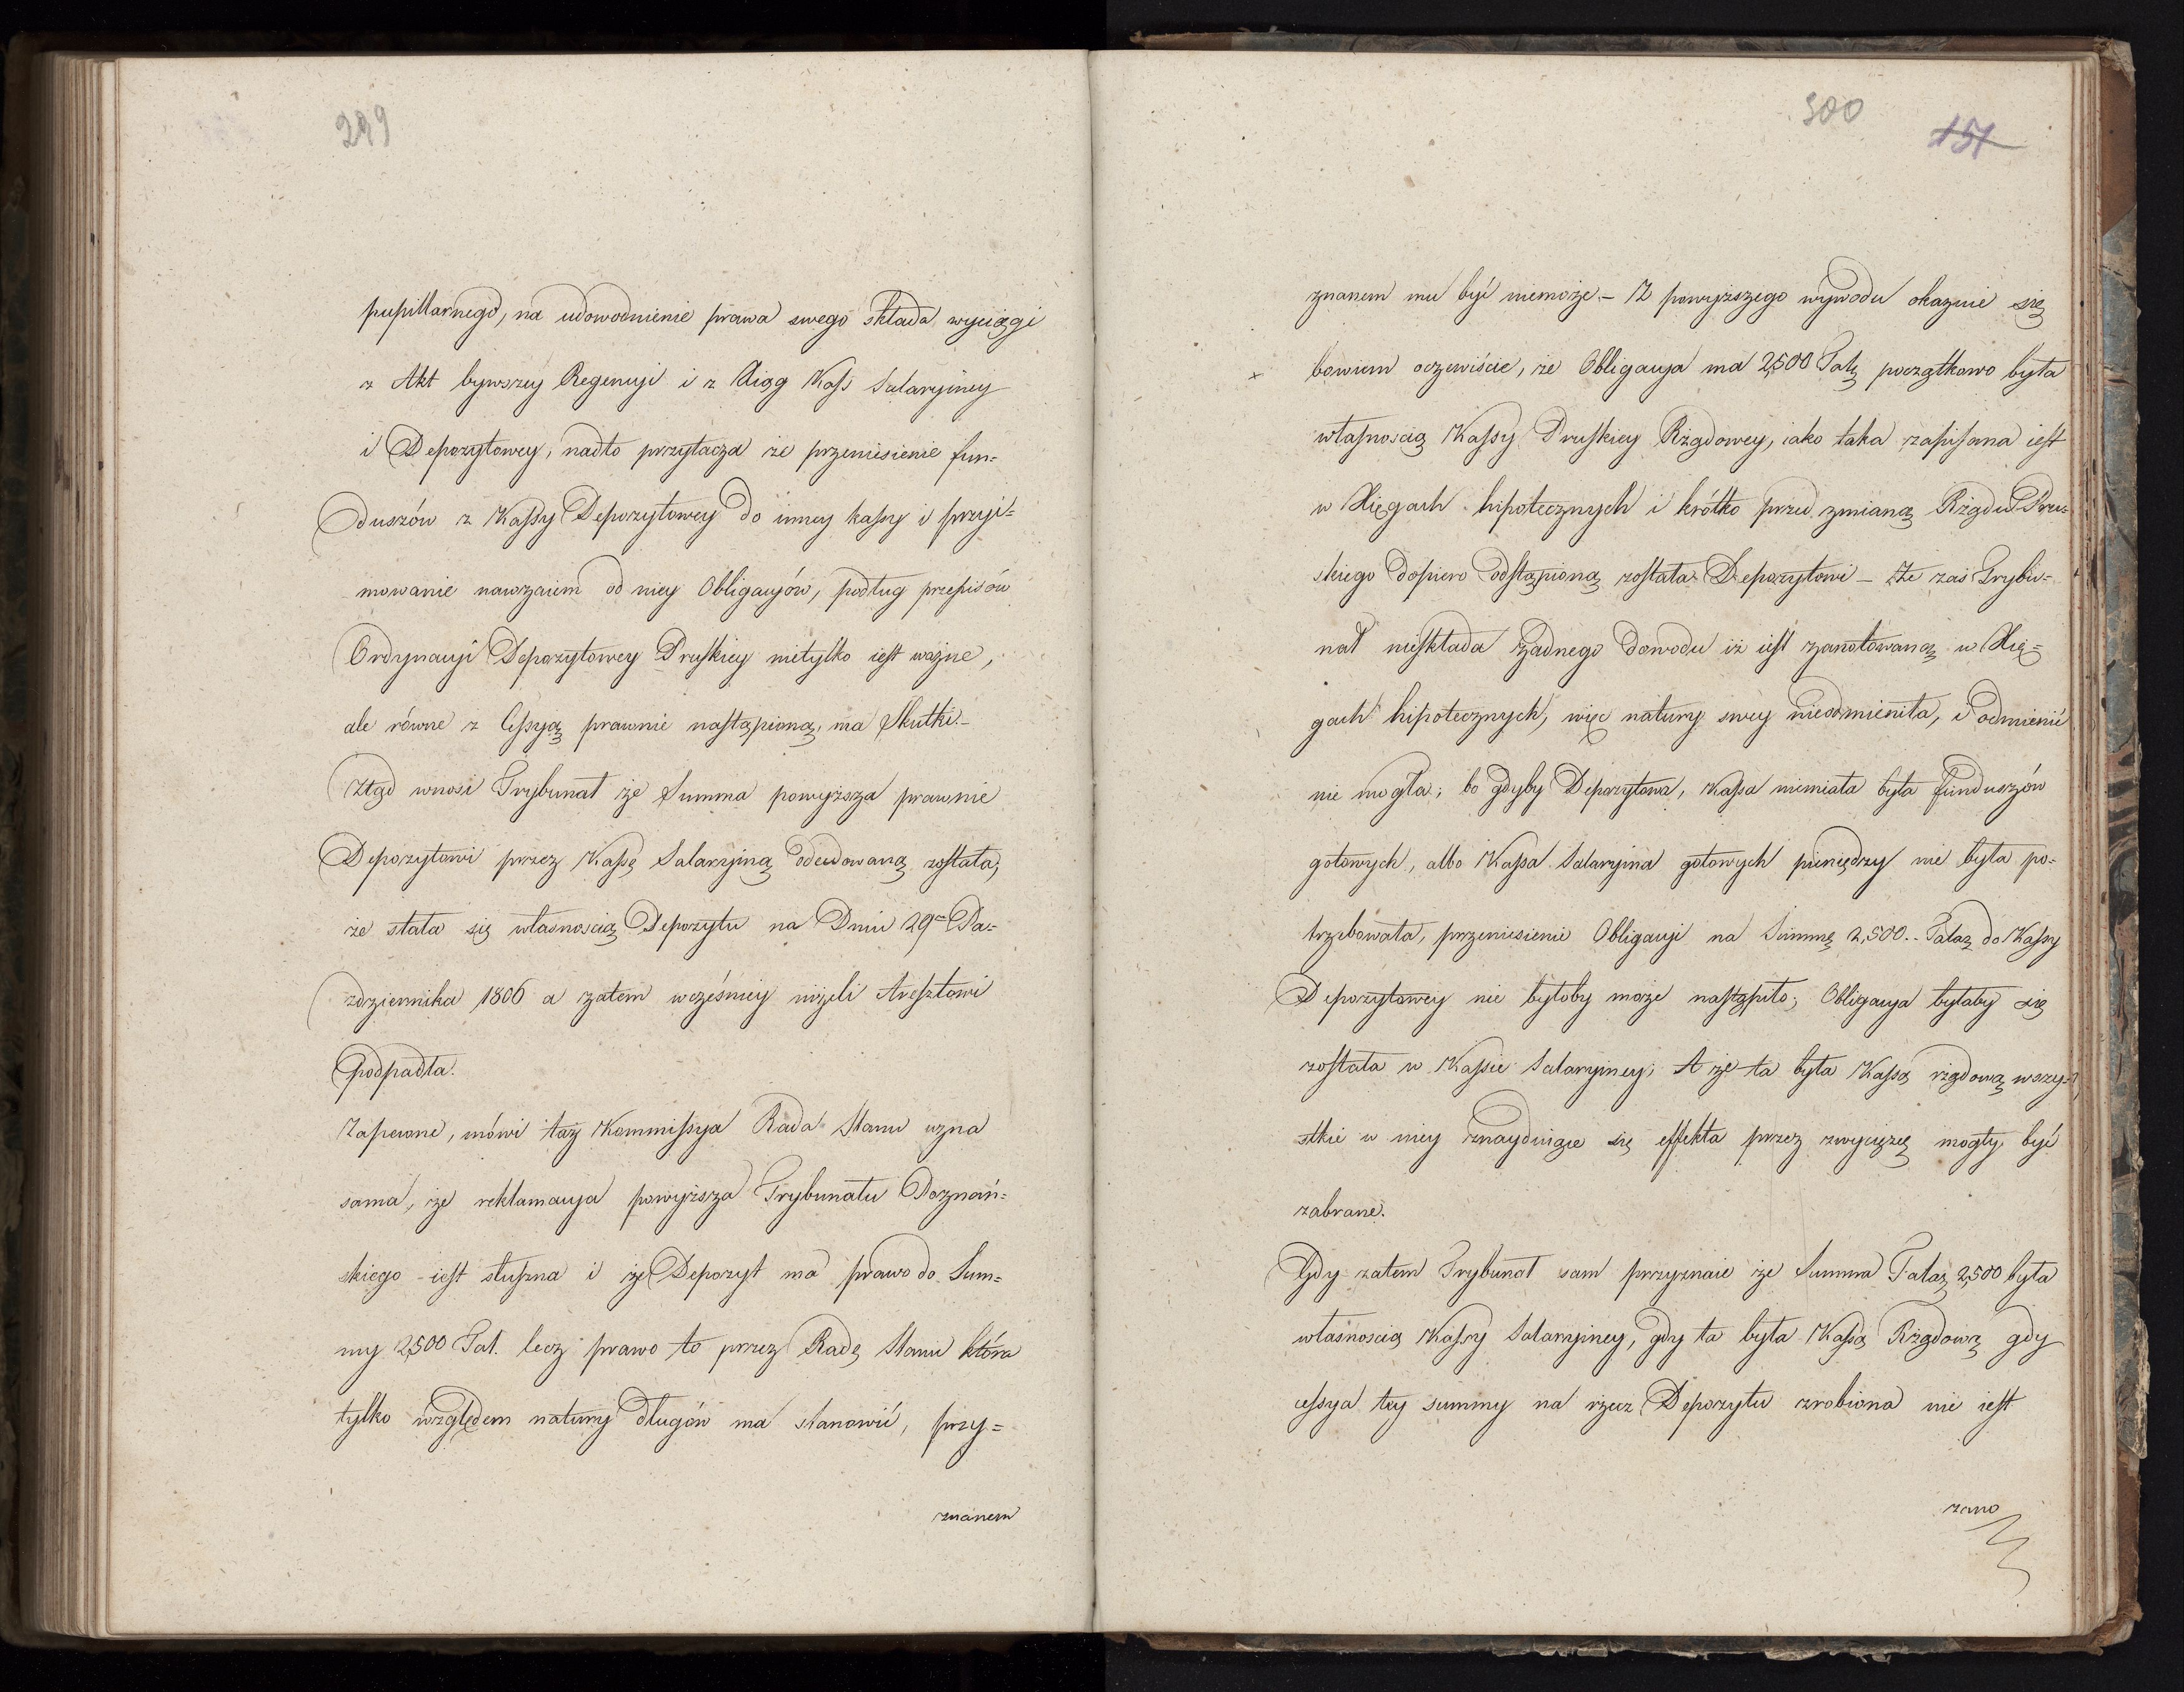 299
pupillarnego, na udowodnienie prawa swego składa wyciągi
z Akt bywszey Regencyi i z Xiąg Kass Salaryiney
i Depozytowey, nadto przytacza że przeniesienie fun=
duszów z Kassy Depozytowey do inney kassy i przyi=
mowanie nawzaiem od niey Obligacyów, podług przepisów
Ordynacyi Depozytowey Pruskiey nietylko iest ważne,
ale równe z Cessyą prawnie nastąpioną, ma skutki.–
Ztąd wnosi Trybunał że Summa powyższa prawnie
Depozytowi przez Kassę Salaryiną odcedowaną została,
że stała się własnością Depozytu na Dniu 29ᵐ Pa=
zdziernika 1806 a zatem wcześniey niżeli Aresztowi
podpadła.
Zapewne, mówi taż Kommissya Rada Stanu uzna
sama, że reklamacya powyższa Trybunału Poznań=
skiego iest słuszna i że Depozyt ma prawo do Sum=
my 2,500 Tal. lecz prawo to przez Radę Stanu która
tylko względem natury długów ma stanowić, przy=
znanem
300
151
znanem mu być niemoże – Z powyższego wywodu okazuie się
bowiem oczewiście, że Obligacya na 2,500 Tal. początkowo była
własnością Kassy Pruskiey Rządowey, iako taka zapisana iest
w Xięgach hipotecznych i krótko przed zmianą Rządu Pru=
skiego dopiero odstąpioną została Depozytowi – Że zaś Trybu=
nał nieskłada żadnego dowodu iż iest zanotowaną w Xię=
gach hipotecznych, więc natury swey nieodmieniła, i odmienić
nie mogła; bo gdyby Depozytowa, Kassa niemiała była funduszów
gotowych, albo Kassa Salaryina gotowych pieniędzy nie była po=
trzebowała, przeniesienie Obligacyi na Summę 2,500.– Talar. do Kassy
Depozytowey nie byłoby może nastąpiło; Obligacya byłaby się
została w Kassie Salaryiney; A że ta była Kassą rządową wszy=
stkie w niey znayduiące się effekta przez zwycięzcę mogły być
zabrane.
Gdy zatem Trybunał sam przyznaie że Summa Talar. 2,500 była
własnością Kassy Salaryiney, gdy ta była Kassą Rządową gdy
cessya tey summy na rzecz Depozytu zrobiona nie iest
zano